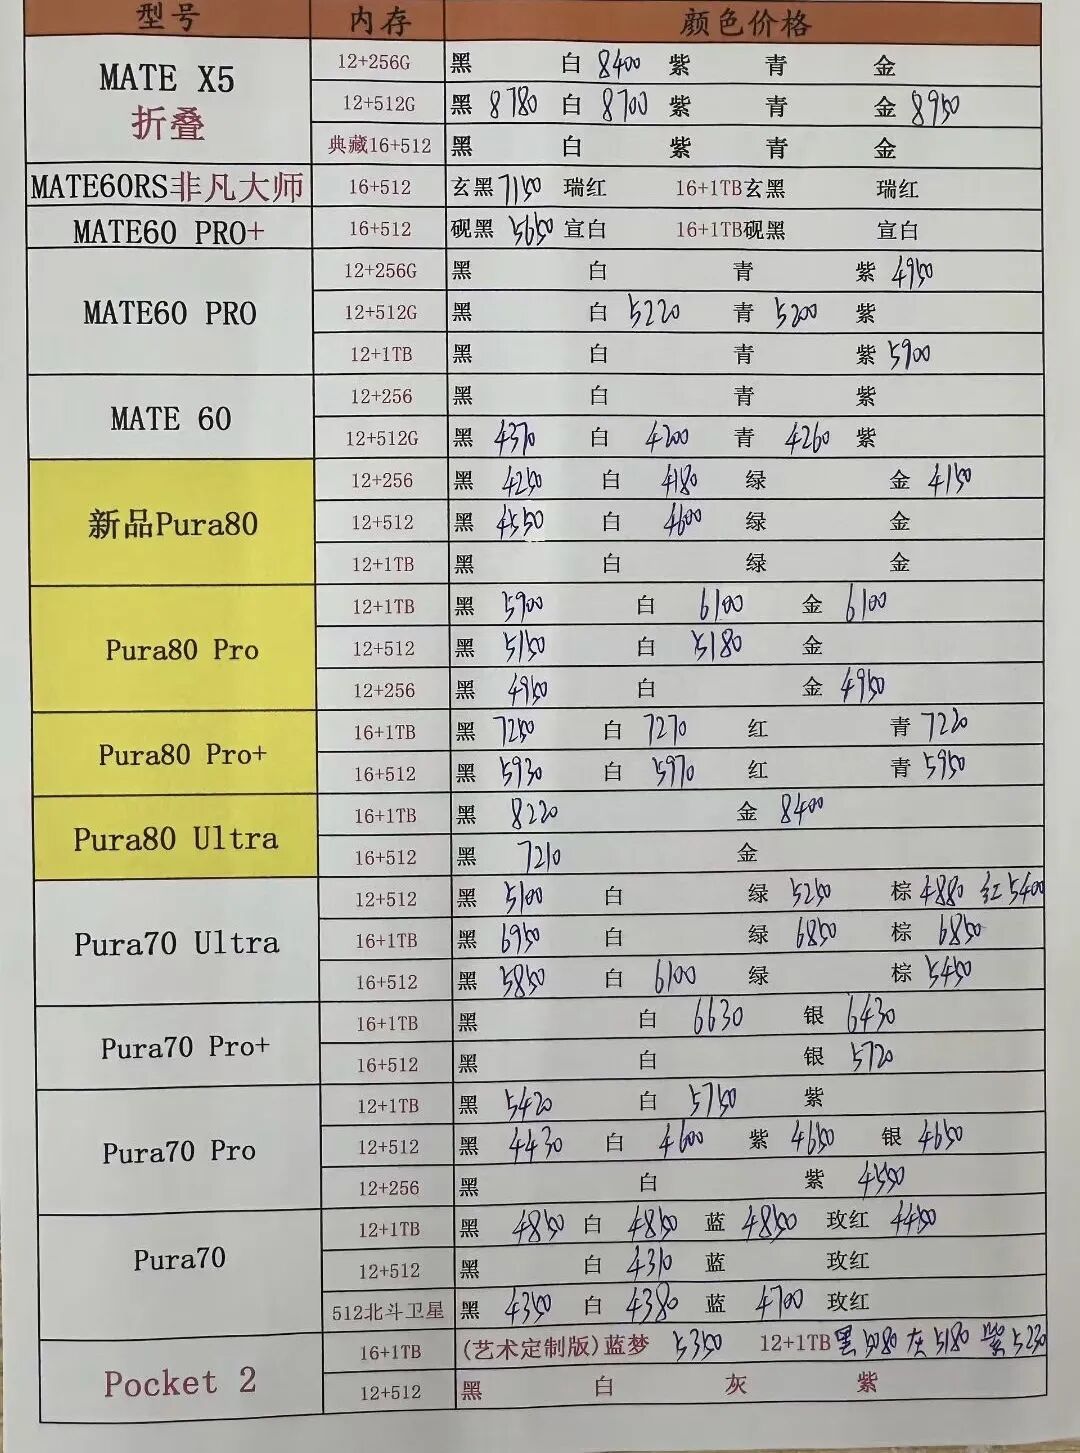 型号 内存 颜色价格
MATE X5 折叠 12+256G 黑 白 8400 紫 青 金
12+512G 黑 8780 白 8700 紫 青 金 8950
典藏16+512 黑 白 紫 青 金
MATE60RS非凡大师 16+512 玄黑 7150 瑞红 16+1TB玄黑 瑞红
MATE60 PRO+ 16+512 砚黑 5650 宣白 16+1TB砚黑 宣白
MATE60 PRO 12+256G 黑 白 青 紫 4950
12+512G 黑 白 5220 青 5200 紫
12+1TB 黑 白 青 紫 5900
MATE 60 12+256 黑 白 青 紫
12+512G 黑 4370 白 4200 青 4260 紫
新品Pura80 12+256 黑 4250 白 4180 绿 金 4150
12+512 黑 4550 白 4600 绿 金
12+1TB 黑 白 绿 金
Pura80 Pro 12+1TB 黑 5900 白 6100 金 6100
12+512 黑 5150 白 5180 金
12+256 黑 4950 白 金 4950
Pura80 Pro+ 16+1TB 黑 7250 白 7270 红 青 7220
16+512 黑 5930 白 5970 红 青 5950
Pura80 Ultra 16+1TB 黑 8220 金 8400
16+512 黑 7210 金
Pura70 Ultra 12+512 黑 5100 白 绿 5250 棕 4880 红 5400
16+1TB 黑 6950 白 绿 6850 棕 6850
16+512 黑 5850 白 6100 绿 棕 5450
Pura70 Pro+ 16+1TB 黑 白 6630 银 6430
16+512 黑 白 银 5720
Pura70 Pro 12+1TB 黑 5420 白 5750 紫
12+512 黑 4430 白 4600 紫 4650 银 4650
12+256 黑 白 紫 4550
Pura70 12+1TB 黑 4850 白 4850 蓝 4850 玫红 4450
12+512 黑 白 4310 蓝 玫红
512北斗卫星 黑 4350 白 4380 蓝 4700 玫红
Pocket 2 16+1TB (艺术定制版)蓝梦 5350 12+1TB 黑 5080 灰 5180 紫 5230
12+512 黑 白 灰 紫